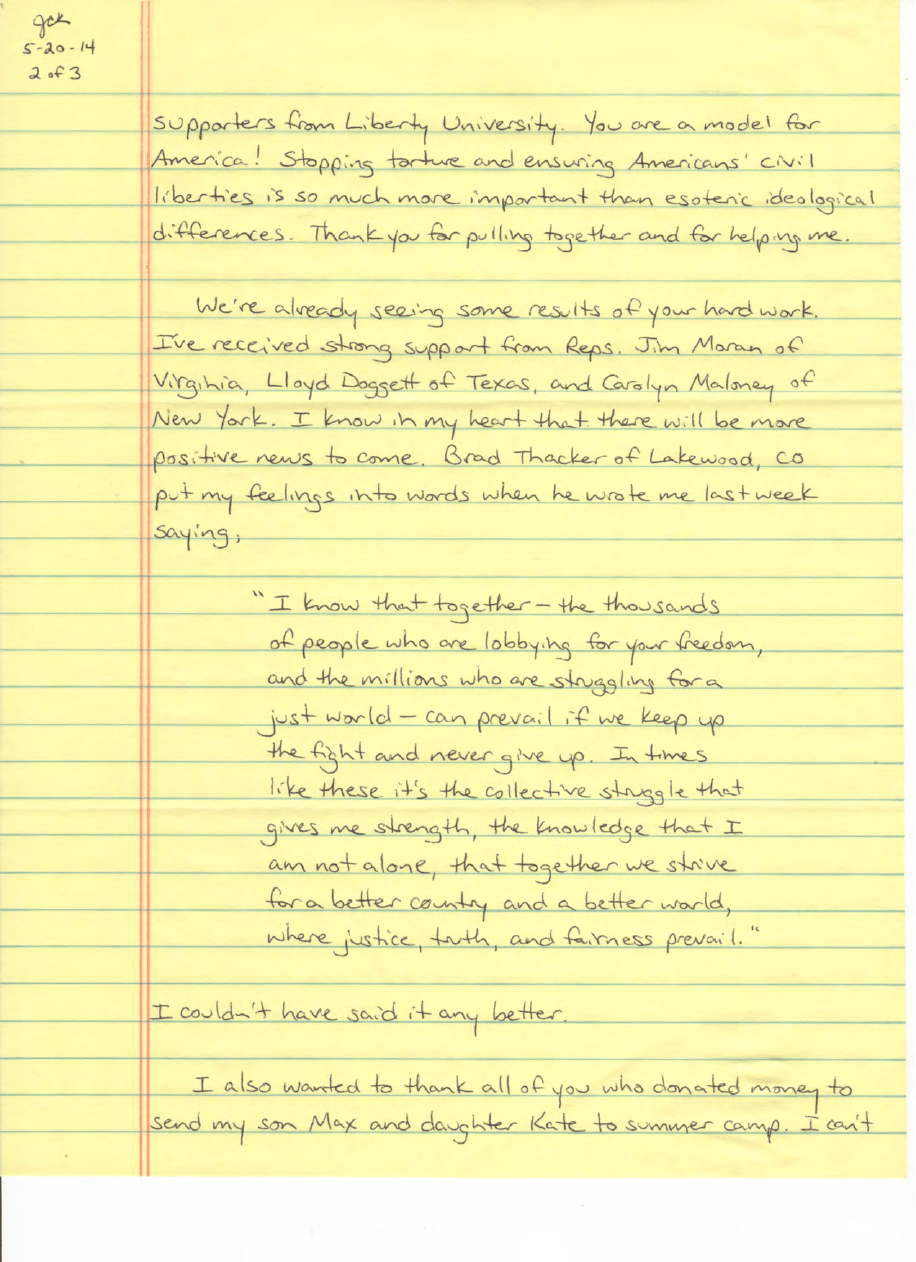 gck
5-20-14
2 of 3
supporters from Liberty University. You are a model for
America! Stopping torture and ensuring Americans' civil
liberties is so much more important than esoteric ideological
differences. Thank you for pulling together and for helping me.
We're already seeing some results of your hard work.
I've received strong support from Reps. Jim Moran of
Virginia, Lloyd Doggett of Texas, and Carolyn Maloney of
New York. I know in my heart that there will be more
positive news to come. Brad Thacker of Lakewood, CO
put my feelings into words when he wrote me last week
saying,
"I know that together – the thousands
of people who are lobbying for your freedom,
and the millions who are struggling for a
just world – can prevail if we keep up
the fight and never give up. In times
like these it's the collective struggle that
gives me strength, the knowledge that I
am not alone, that together we strive
for a better country and a better world,
where justice, truth, and fairness prevail."
I couldn't have said it any better.
I also wanted to thank all of you who donated money to
send my son Max and daughter Kate to summer camp. I can't